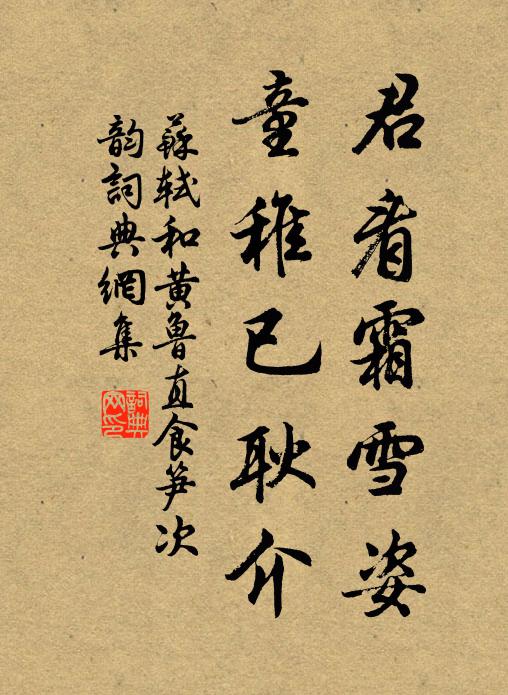 君看霜雪姿
童稚已耿介
蘇軾和黃魯直食笋次
韵詞典網集
詞典
网印